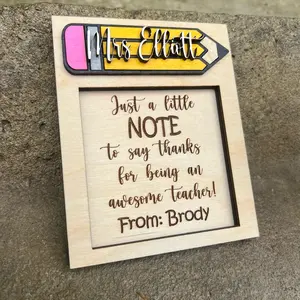 Mrs Elliott
Just a little
NOTE
to say thanks
for being an
awesome teacher!
From: Brody